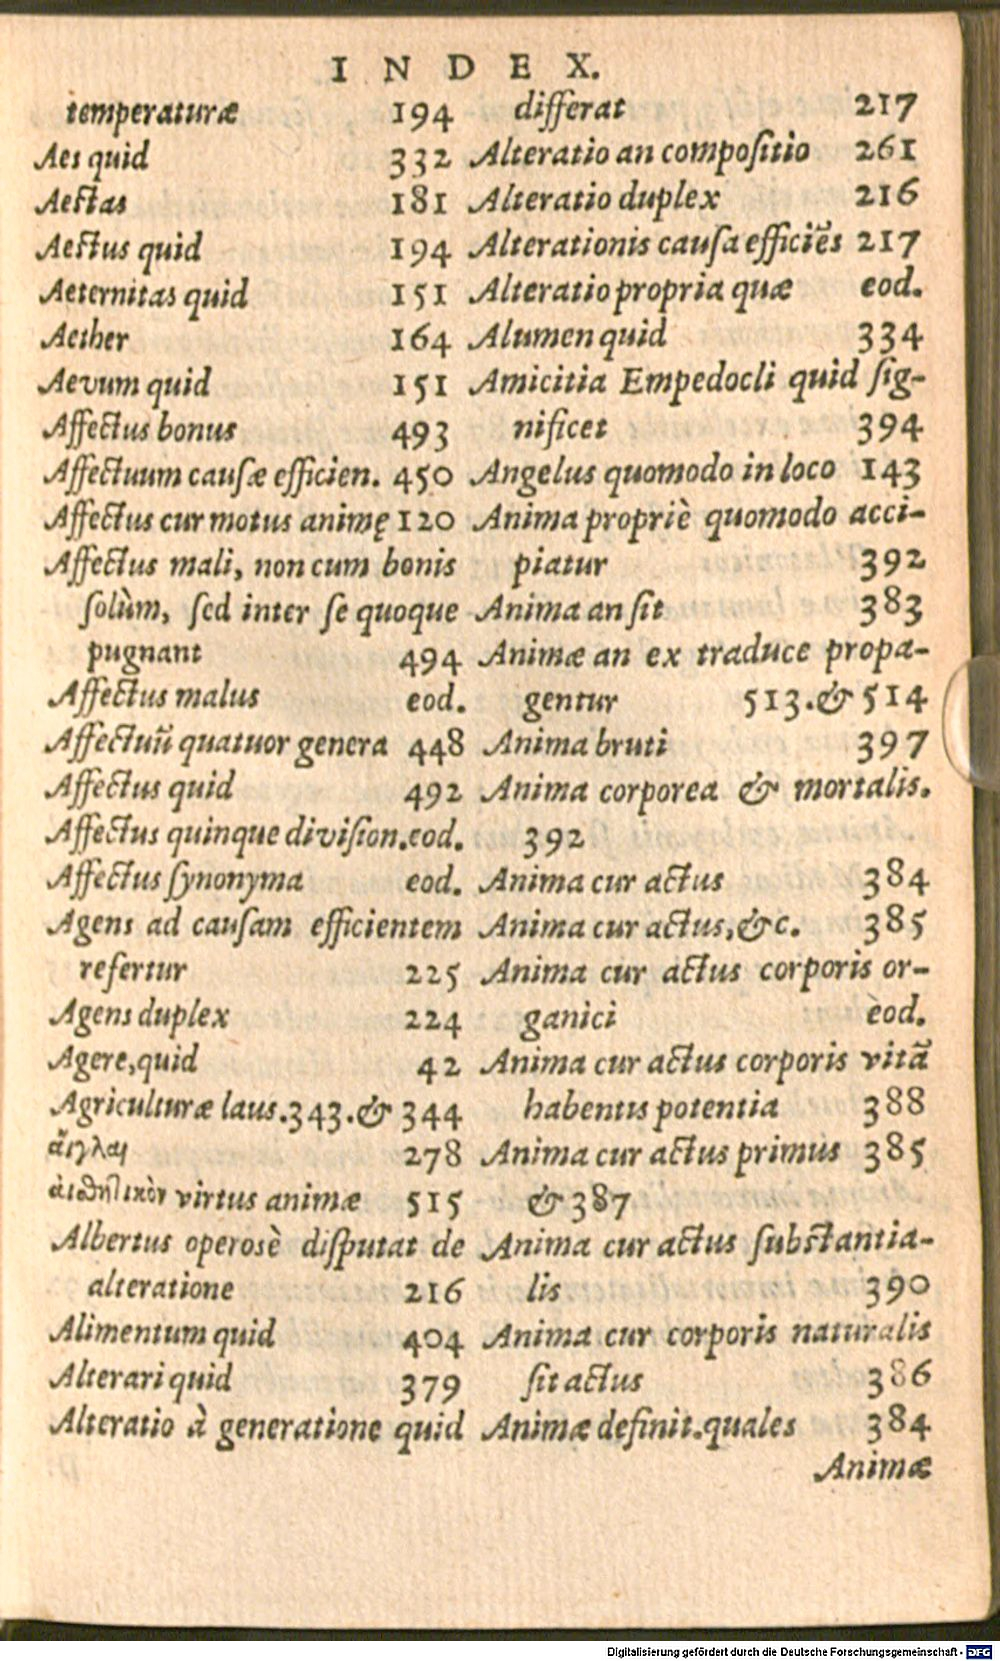 INDEX.
temperaturæ 194
Aes quid 332
Aestas 181
Aestus quid 194
Aeternitas quid 151
Aether 164
Aevum quid 151
Affectus bonus 493
Affectuum causæ efficien. 450
Affectus cur motus animę 120
Affectus mali, non cum bonis
solùm, sed inter se quoque
pugnant 494
Affectus malus eod.
Affectuũ quatuor genera 448
Affectus quid 492
Affectus quinque division. eod.
Affectus synonyma eod.
Agens ad causam efficientem
refertur 225
Agens duplex 224
Agere, quid 42
Agriculturæ laus. 343. & 344
αἶγλαι 278
αἰσθητικὸν virtus animæ 515
Albertus operosè disputat de
alteratione 216
Alimentum quid 404
Alterari quid 379
Alteratio à generatione quid
differat 217
Alteratio an compositio 261
Alteratio duplex 216
Alterationis causa efficiẽs 217
Alteratio propria quæ eod.
Alumen quid 334
Amicitia Empedocli quid sig-
nificet 394
Angelus quomodo in loco 143
Anima propriè quomodo acci-
piatur 392
Anima an sit 383
Animæ an ex traduce propa-
gentur 513. & 514
Anima bruti 397
Anima corporea & mortalis.
392
Anima cur actus 384
Anima cur actus, &c. 385
Anima cur actus corporis or-
ganici èod.
Anima cur actus corporis vitã
habentis potentia 388
Anima cur actus primus 385
& 387
Anima cur actus substantia-
lis 390
Anima cur corporis naturalis
sit actus 386
Animæ definit. quales 384
Animæ
Digitalisierung gefördert durch die Deutsche Forschungsgemeinschaft - DFG